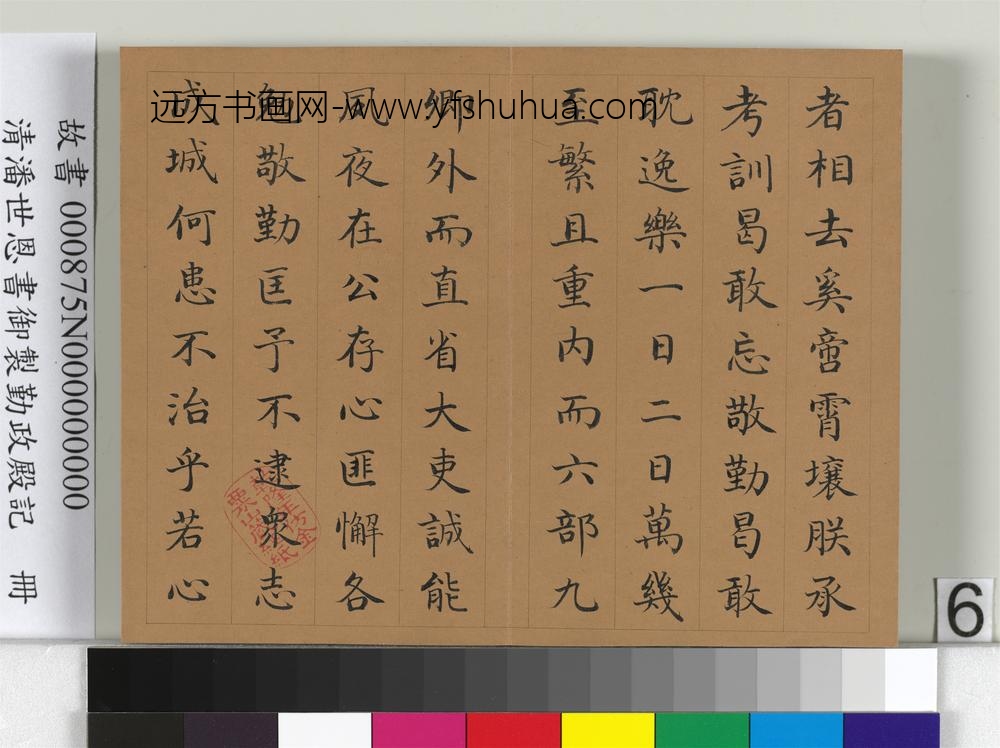 者相去奚啻霄壤朕承
考訓曷敢忘敬勤曷敢
耽逸樂一日二日萬幾
至繁且重内而六部九
卿外而直省大吏誠能
夙夜在公存心匪懈各
勉敬勤匡予不逮衆志
成城何患不治乎若心
乾隆年仿金粟山藏經紙
远方书画网-www.yfshuhua.com
故書 000875N000000000
清潘世恩書御製勤政殿記 冊
6